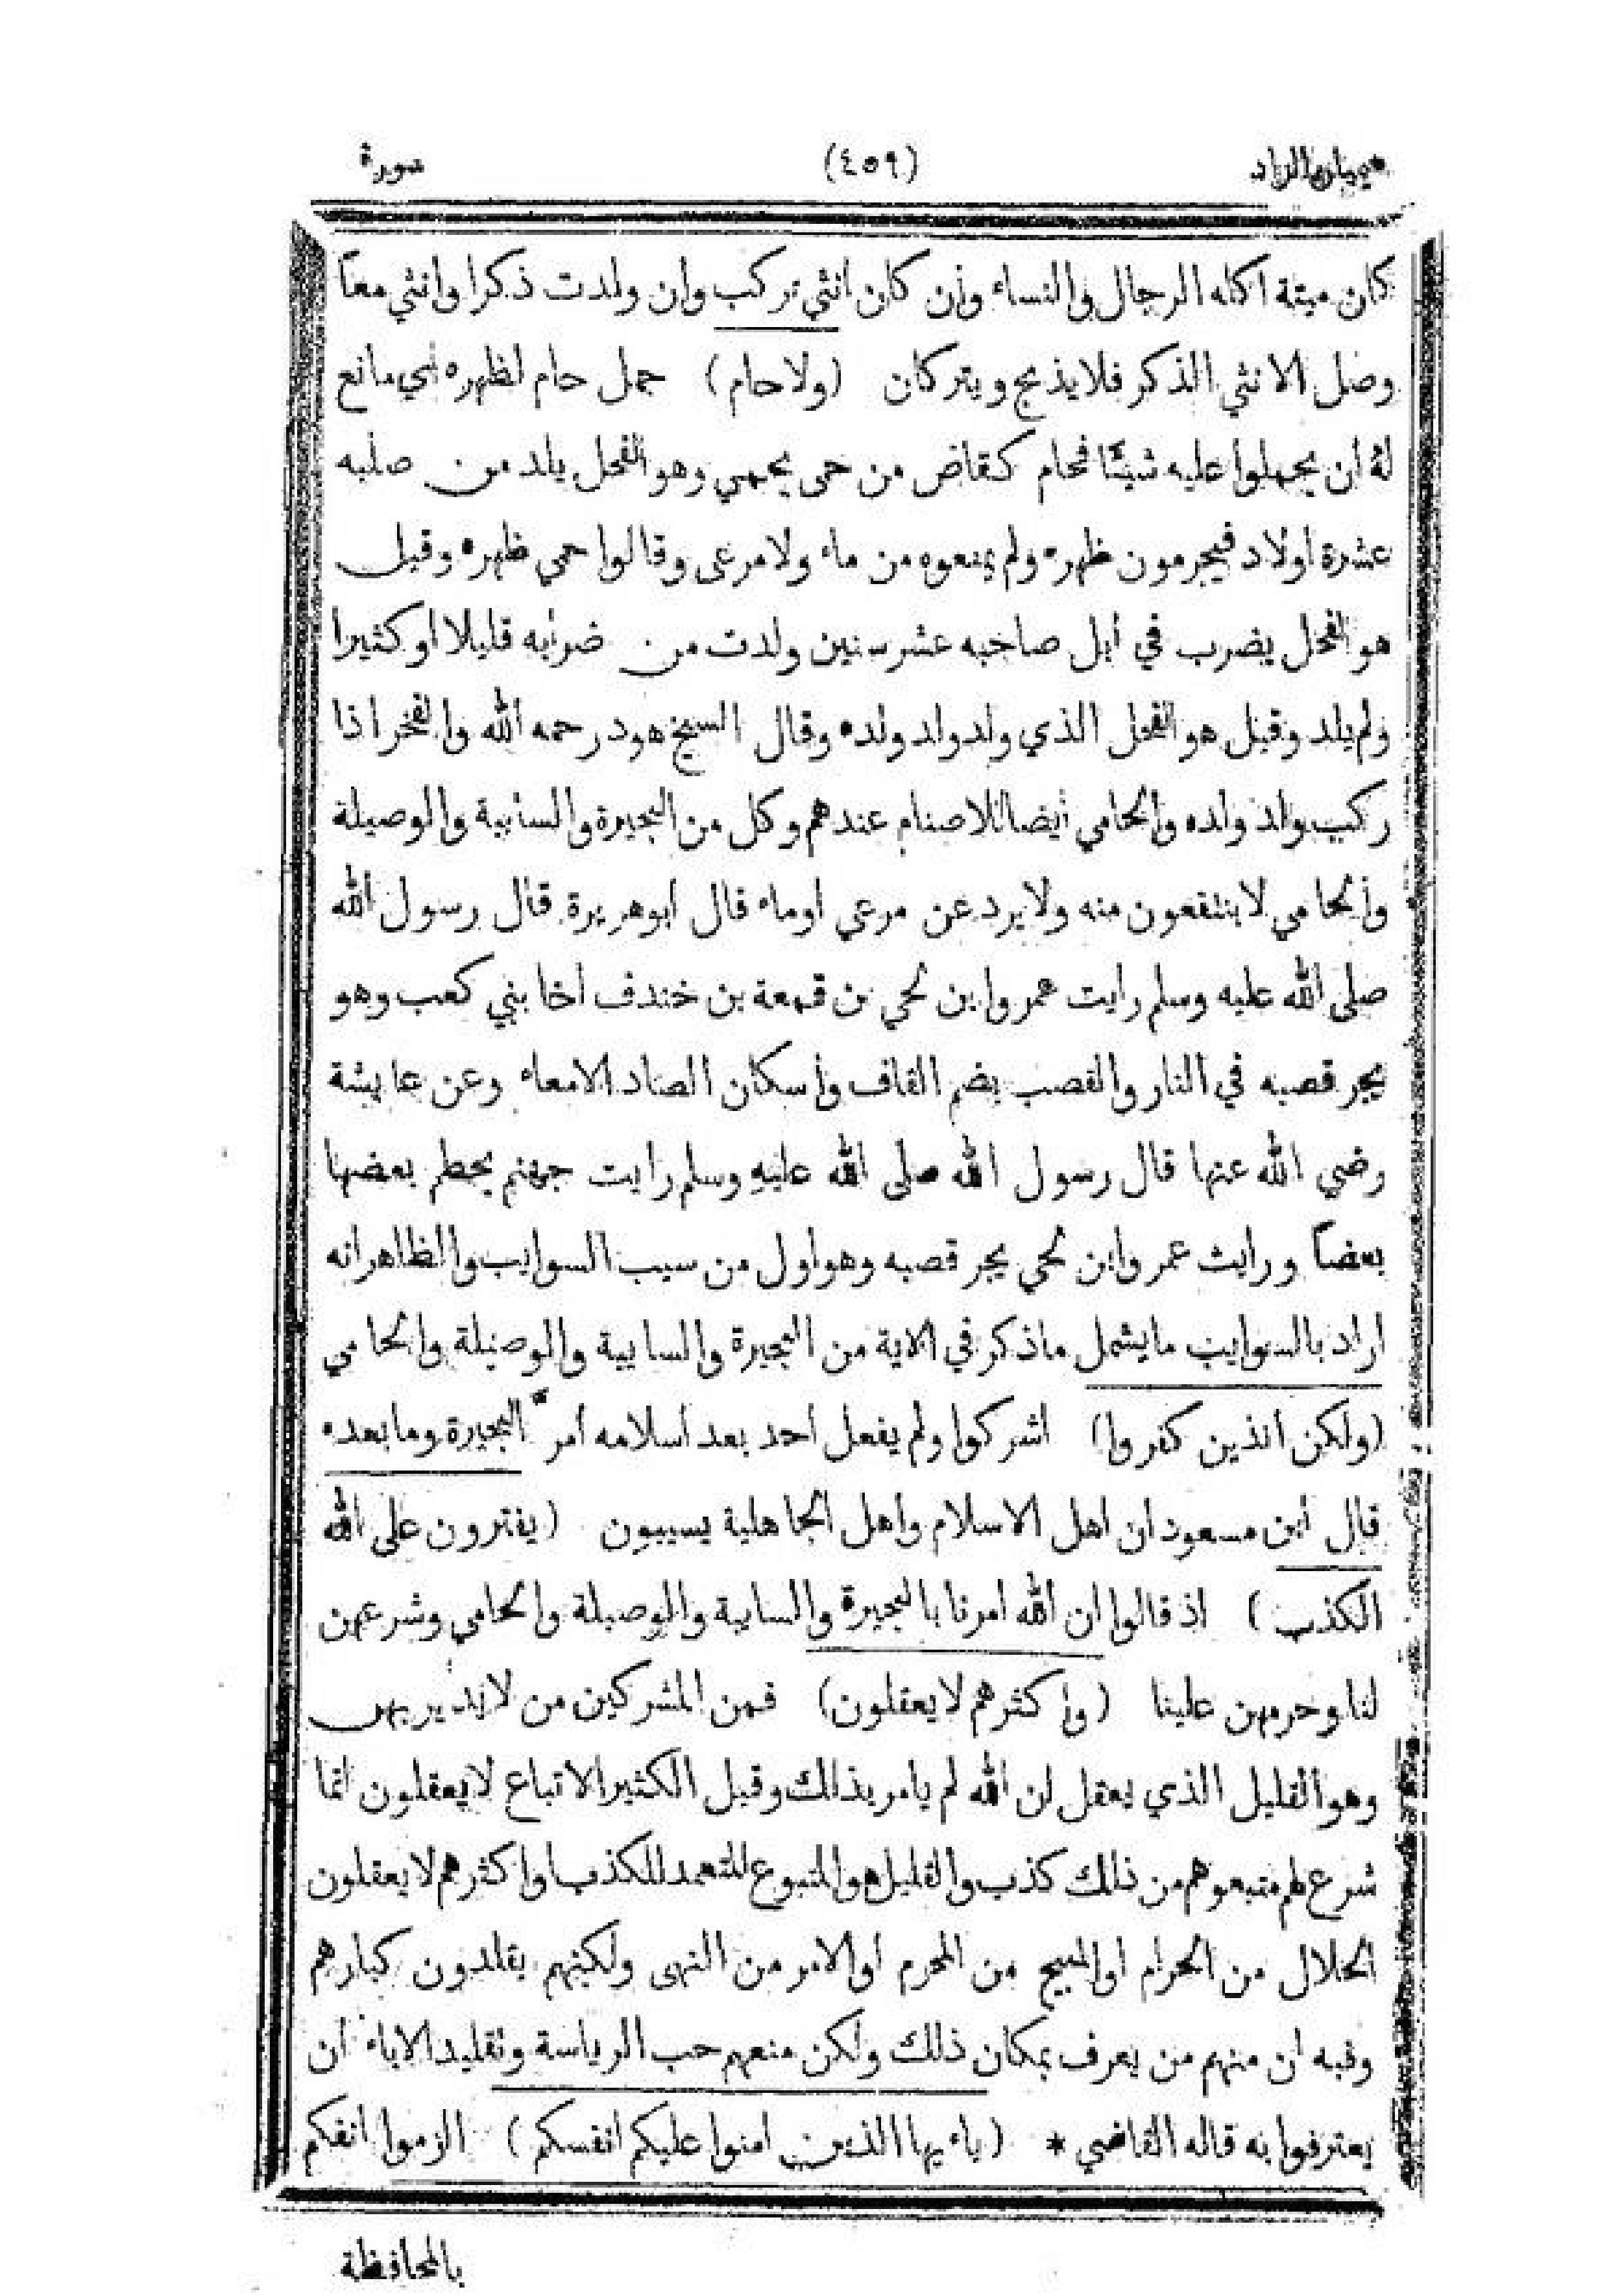 هيميان الزاد (٤٥٩) سورة
كان ميتة اكله الرجال والنساء وان كان انثي تركب وان ولدت ذكرا وانثي معاً
وصل الانثي الذكر فلا يذبح ويتركان (ولا حام) جمل حام لظهره اي مانع
له ان يحملوا عليه شيئا فحام كقاض من حمى يحمي وهو الفحل يلد من صلبه
عشرة اولاد فيحرمون ظهره ولم يمنعوه من ماء ولا مرعى وقالوا حمي ظهره وقيل
هو الفحل يضرب في ابل صاحبه عشر سنين ولدت من ضرابه قليلا او كثيرا
ولم يلد وقيل هو الفحل الذي ولد ولد ولده وقال الشيخ هود رحمه الله والفخر اذا
ركب ولد ولده والحامي أيضا للاصنام عندهم وكل من البحيرة والسايبة والوصيلة
والحامي لا ينتفعون منه ولا يرد عن مرعي اوماء قال ابوهريرة قال رسول الله
صلى الله عليه وسلم رايت عمروا بن لحي بن قمعة بن خندف اخا بني كعب وهو
يجر قصبه في النار والقصب بضم القاف واسكان الصاد الامعاء وعن عايشة
رضي الله عنها قال رسول الله صلى الله عليه وسلم رايت جهنم يحطم بعضها
بعضاً ورايت عمروا بن لحي يجر قصبه وهو اول من سيب السوايب والظاهر انه
اراد بالسوايب ما يشمل ماذكر في الاية من البحيرة والسايبة والوصيلة والحامي
(ولكن الذين كفروا) اشركوا ولم يفعل احد بعد اسلامه امر البحيرة وما بعده
قال ابن مسعود ان اهل الاسلام واهل الجاهلية يسيبون (يفترون على الله
الكذب) اذ قالوا ان الله امرنا بالبحيرة والسايبة والوصيلة والحامي وشرعهن
لنا وحرمهن علينا (واكثرهم لا يعقلون) فمن المشركين من لا يدير بهن
وهو القليل الذي يعقل ان الله لم يامر بذلك وقيل الكثير الاتباع لا يعقلون انما
شرع لهم متبعوهم من ذلك كذب والقليل هو المتبوع المتعمد للكذب او اكثرهم لا يعقلون
الحلال من الحرام او المبيح من المحرم او الامر من النهى ولكنهم يقلدون كبارهم
وفيه ان منهم من يعرف بمكان ذلك ولكن منعهم حب الرياسة وتقليد الاباء ان
يعترفوا به قاله القاضي * (ياءيها الذين امنوا عليكم انفسكم) الزموا انفكم
بالمحافظة